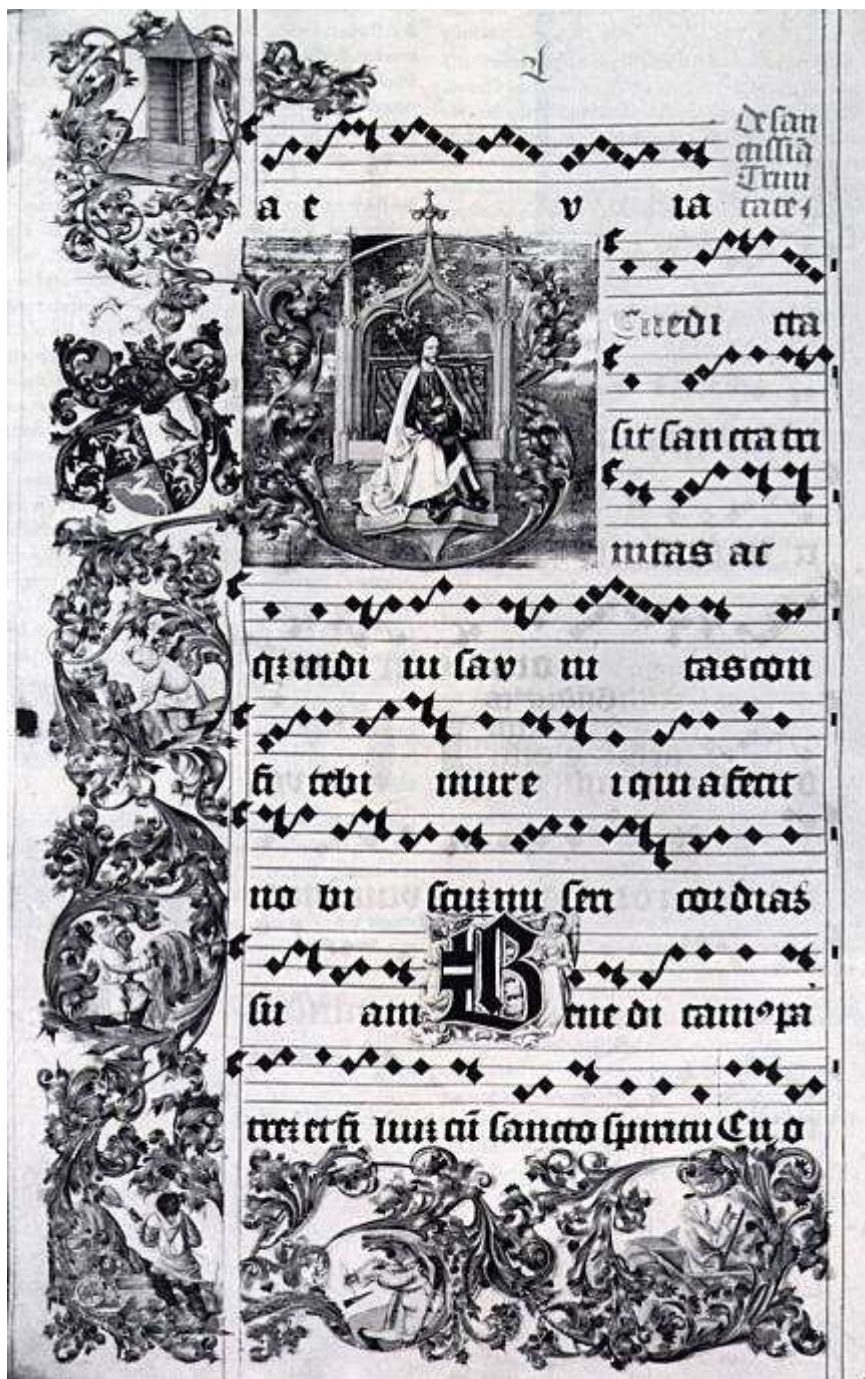 De san
ctissiā
Trini
tate
a e v ia
Benedi cta
sit sancta tri
nitas at
qʒ indi ui sa v ni tas con
fi tebi mur e i quia fecit
no bi scuʒ mi seri cordiaꝫ
su am Bene di camꝰ pa
treʒ et fi liuʒ cū sancto spiritu Eu o